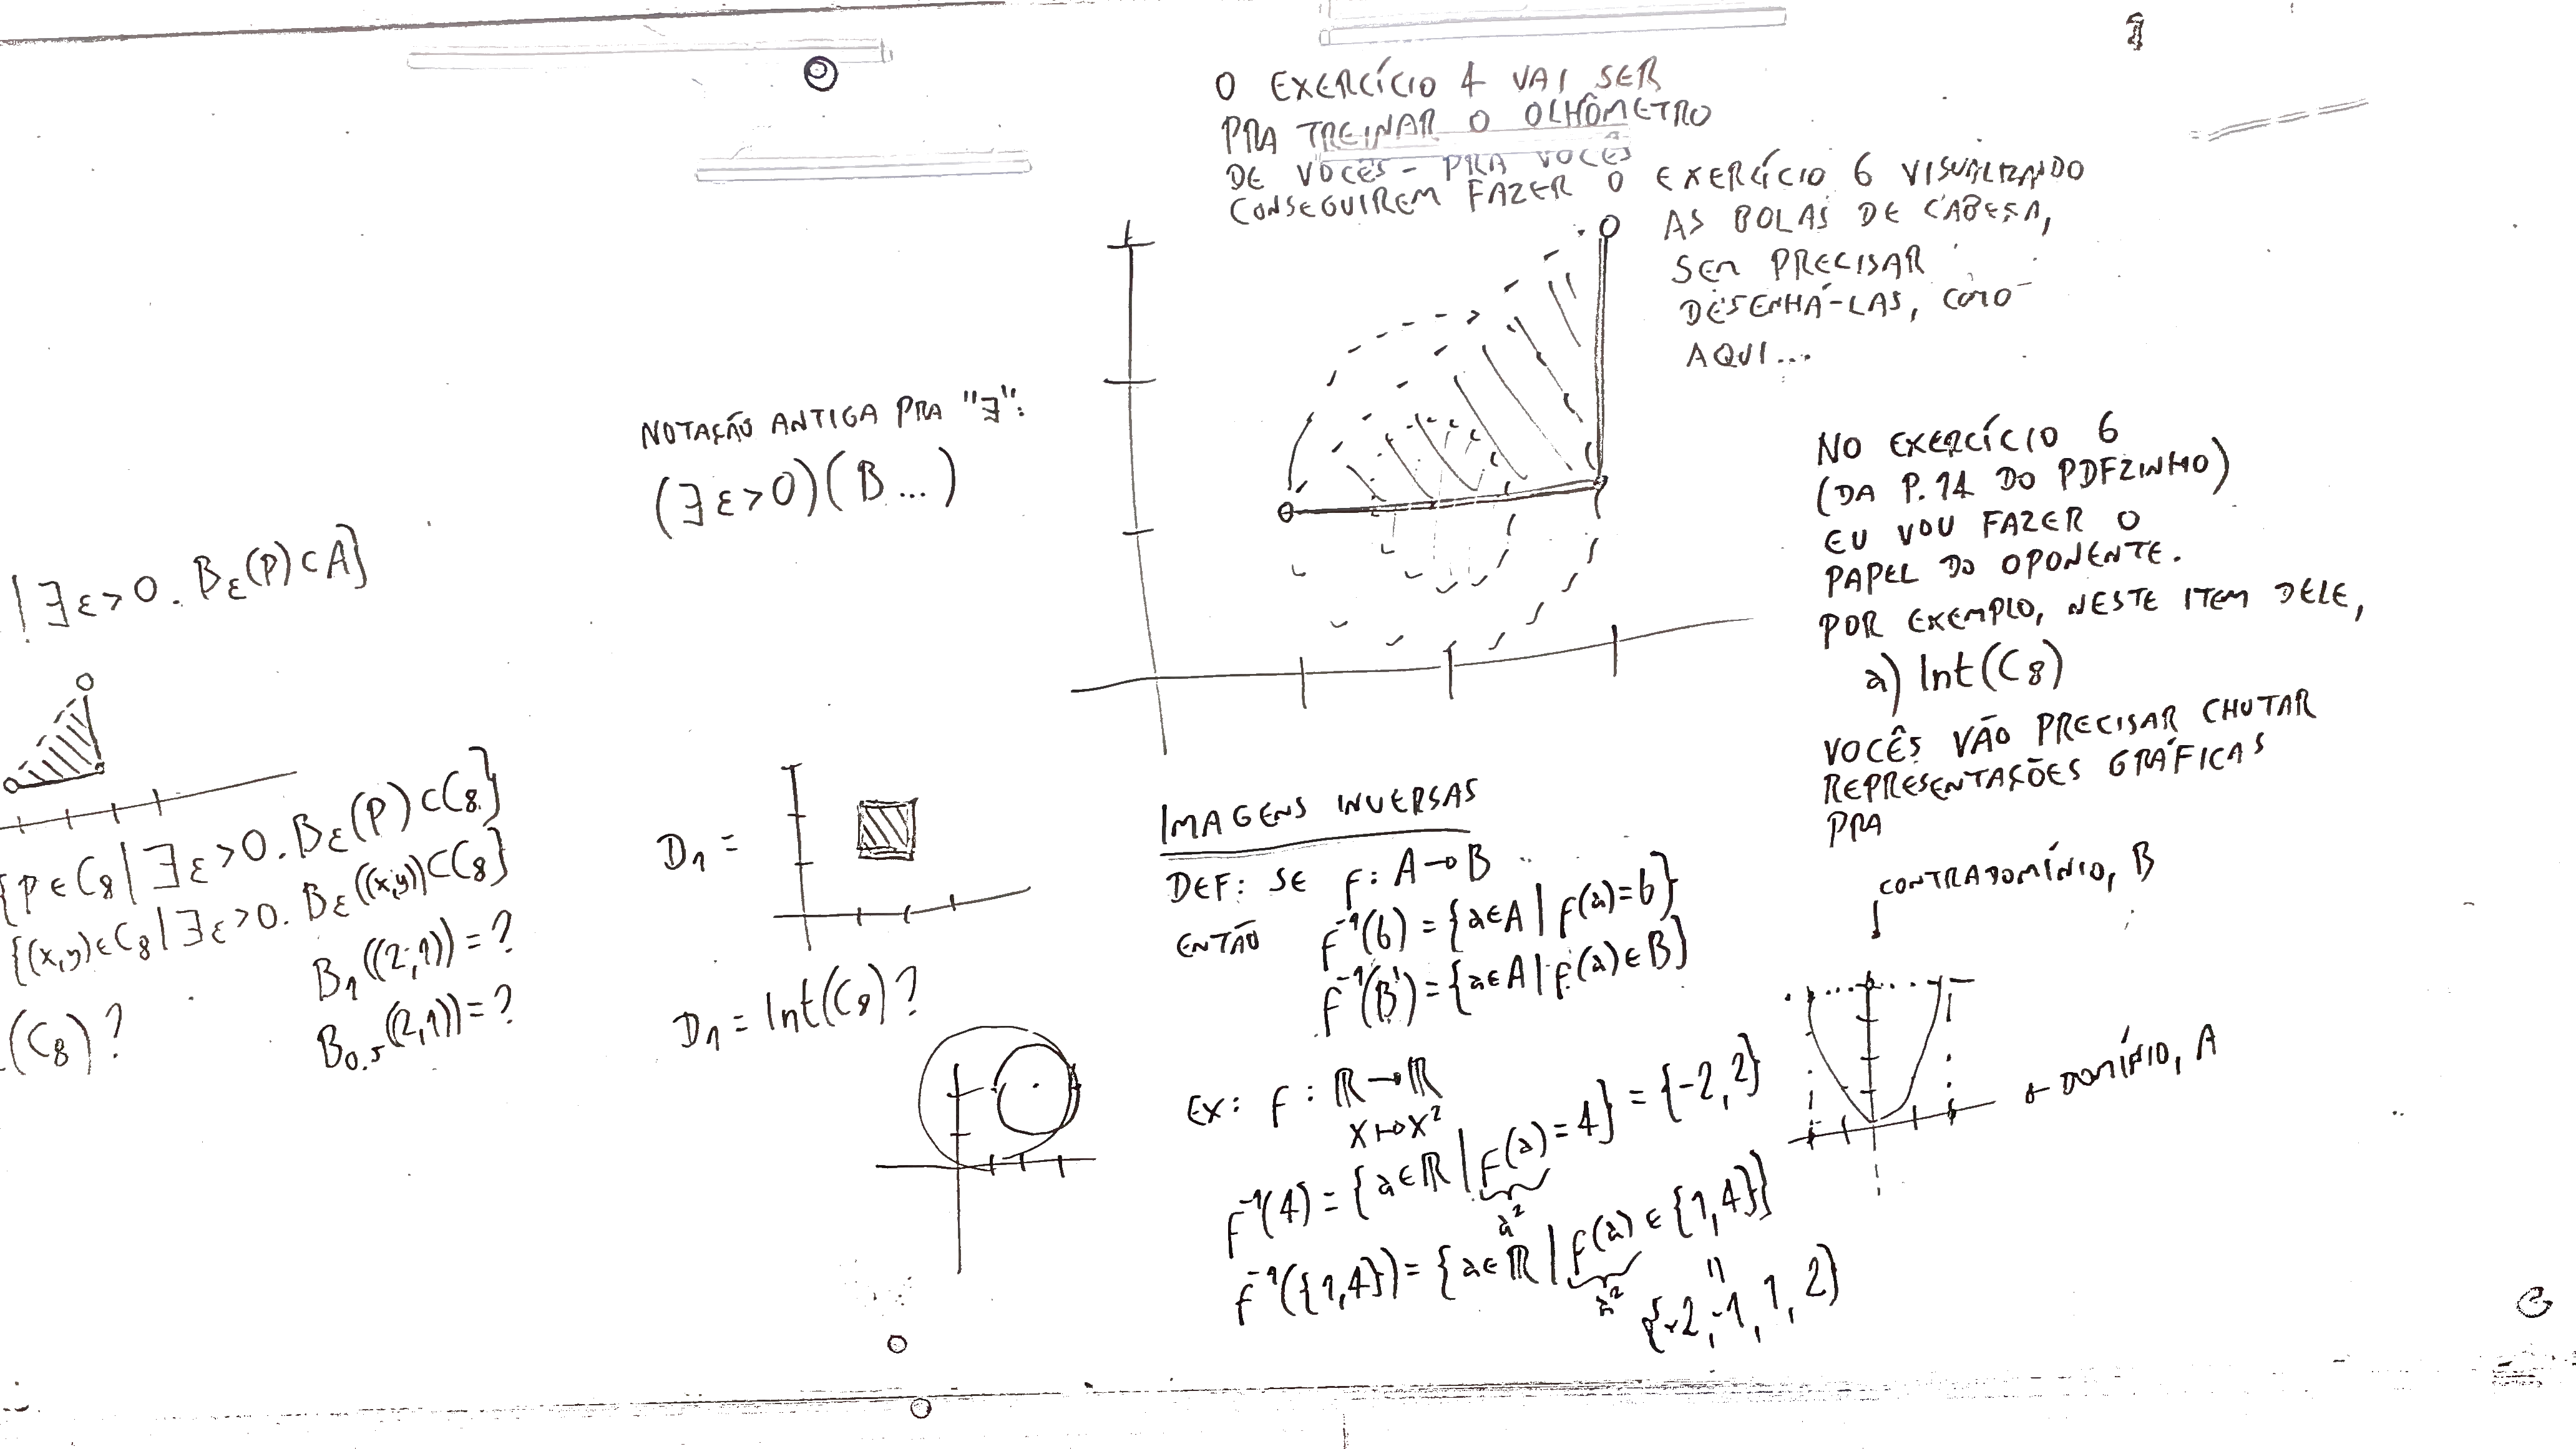 O EXERCÍCIO 4 VAI SER
PRA TREINAR O OLHÔMETRO
DE VOCÊS - PRA VOCÊS
CONSEGUIREM FAZER O EXERCÍCIO 6 VISUALIZANDO
AS BOLAS DE CABEÇA,
SEM PRECISAR
DESENHÁ-LAS, COMO
AQUI...
NOTAÇÃO ANTIGA PRA "∃":
(∃ε>0)(B...)
| ∃ε>0. Bε(P)⊂A}
{P∈C8 | ∃ε>0. Bε(P)⊂C8}
{(x,y)∈C8 | ∃ε>0. Bε((x,y))⊂C8}
B1((2,1))=?
(C8)?
B0.5((2,1))=?
D1 =
D1 = Int(C8)?
NO EXERCÍCIO 6
(DA P.14 DO PDFZINHO)
EU VOU FAZER O
PAPEL DO OPONENTE.
POR EXEMPLO, NESTE ITEM DELE,
a) Int(C8)
VOCÊS VÃO PRECISAR CHUTAR
REPRESENTAÇÕES GRÁFICAS
PRA
IMAGENS INVERSAS
DEF: SE f: A→B
ENTÃO f⁻¹(b) = {a∈A | f(a)=b}
f⁻¹(B') = {a∈A | f(a)∈B}
EX: f: ℝ→ℝ
x↦x²
f⁻¹(4) = {a∈ℝ | f(a)=4} = {-2,2}
a²
f⁻¹({1,4}) = {a∈ℝ | f(a)∈{1,4}}
a²
=
{-2,-1,1,2}
CONTRADOMÍNIO, B
← DOMÍNIO, A